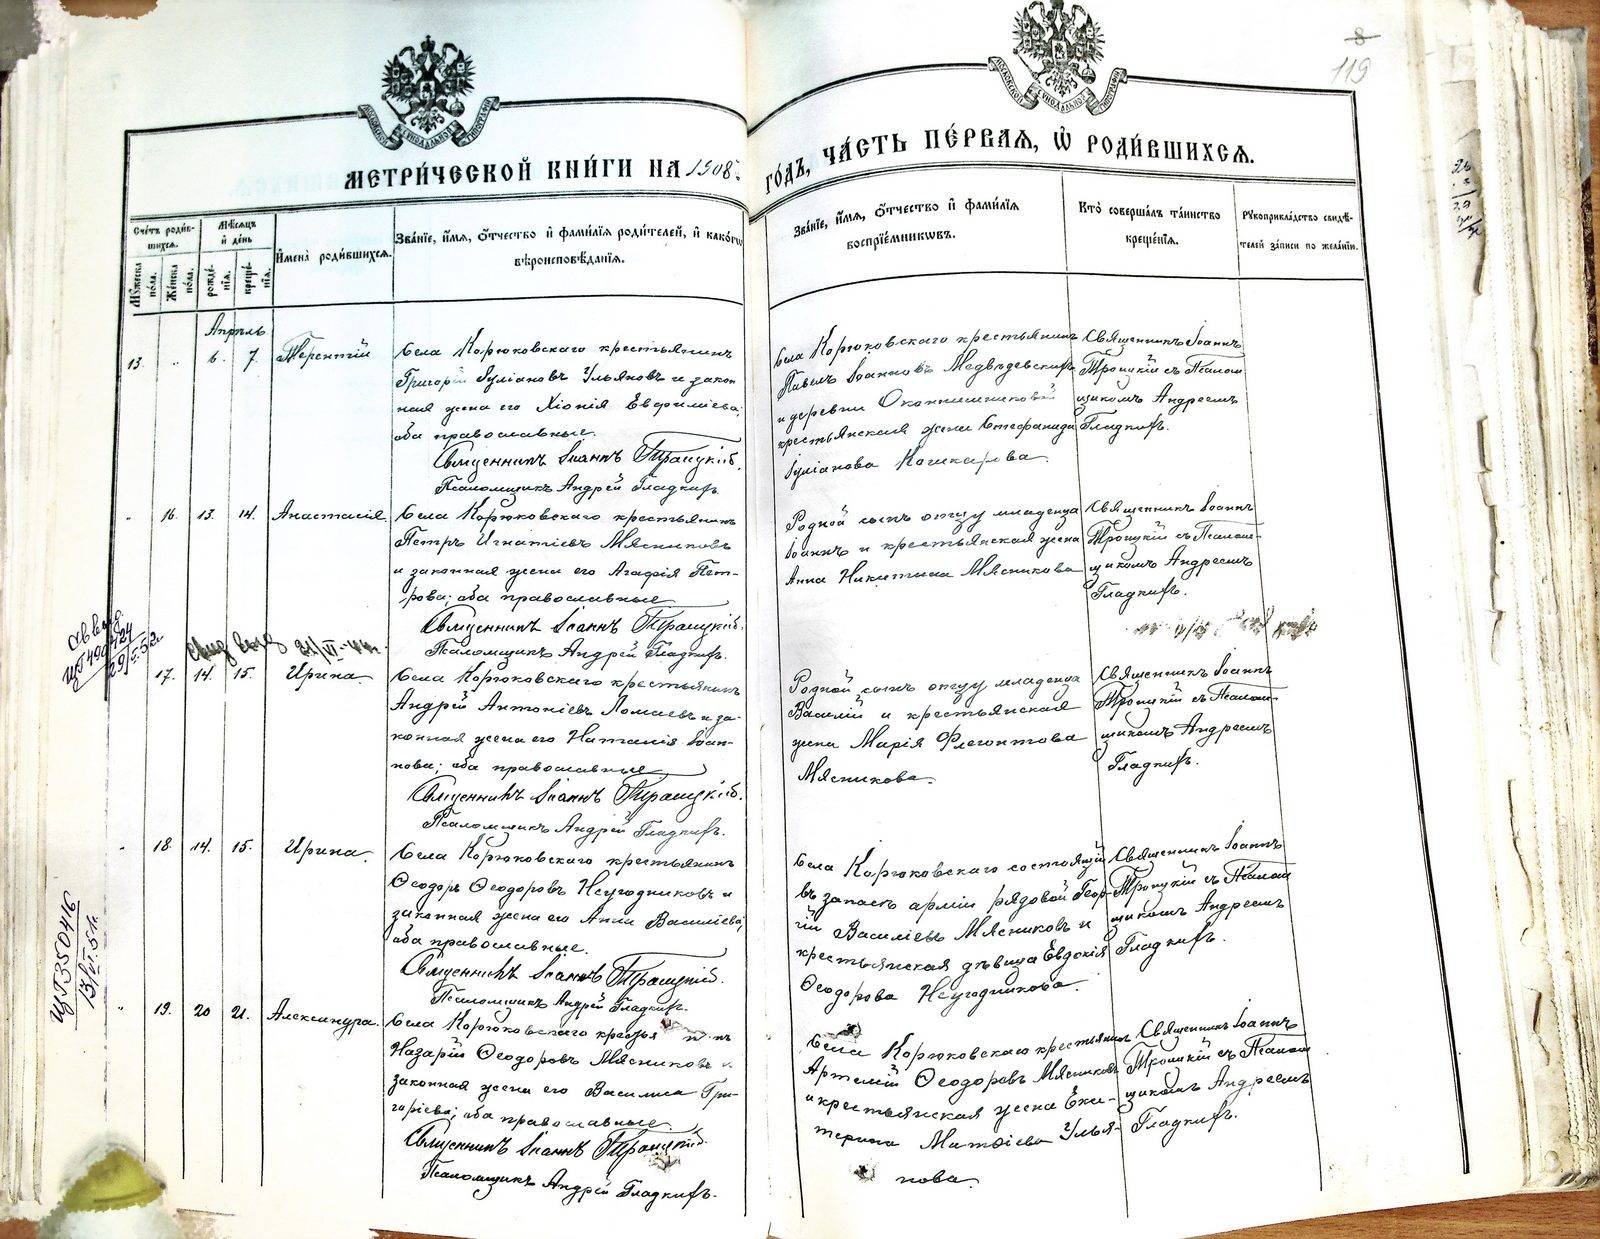 8
119
МОСКОВСКОЙ СѴНОДАЛЬНОЙ ТИПОГРАФІИ
МОСКОВСКОЙ СѴНОДАЛЬНОЙ ТИПОГРАФІИ
МЕТРИ́ЧЕСКОЙ КНИ́ГИ НА 1908 ГО́ДЪ, ЧА́СТЬ ПЕ́РВАЯ, Ѡ҆ РОДИ́ВШИХСЯ.
Сче́тъ роди́в-
шихся.
Мѣ́сяцъ
и҆ де́нь
Мꙋ́жеска
по́ла.
Же́нска
по́ла.
рожде́-
нїя.
креще́-
нїя.
И҆мена̀ роди́вшихся.
Зва́нїе, и҆́мя, ѻ҆́тчество и҆ фами́лїя роди́телей, и҆ како́гѡ
вѣроисповѣ́данїя.
Зва́нїе, и҆́мя, ѻ҆́тчество и҆ фами́лїя
воспрїе́мниковъ.
Кто̀ соверша́лъ та́инство
креще́нїя.
Рꙋкоприкла́дство свидѣ́-
телей за́писи по жела́нїи.
Апрѣль
13. " 6. 7. Терентій
Села Корюковскаго крестьянинъ
Григорій Іуліановъ Ульяновъ и закон
ная жена его Хіонія Евфиміева;
оба православные.
Священникъ Іоаннъ Троицкій.
Псаломщикъ Андрей Гладкихъ.
Села Корюковскаго крестьянинъ
Павелъ Іоанновъ Медвѣдевскихъ
и деревни
крестьянская жена Стефанида
Іуліанова Кашкарова.
Священникъ Іоаннъ
Троицкій съ Псалом
щикомъ Андреемъ
Гладкихъ.
" 16. 13. 14. Анастасія
Села Корюковскаго крестьянинъ
Петръ Игнатіевъ Мясниковъ
и законная жена его Агафія Пет-
рова; оба православные
Священникъ Іоаннъ Троицкій.
Псаломщикъ Андрей Гладкихъ.
Родной сынъ отцу младенца
Іоаннъ и крестьянская жена
Анна Никитина Мясникова
Священникъ Іоаннъ
Троицкій съ Псалом-
щикомъ Андреемъ
Гладкихъ.
29/V.52г.
17. 14. 15. Ирина
Села Корюковскаго крестьянинъ
Андрей Антоніевъ Ломаевъ и за-
конная жена его Наталія Іоан-
нова; оба православные
Священникъ Іоаннъ Троицкій.
Псаломщикъ Андрей Гладкихъ.
Родной сынъ отцу младенца
Василій и крестьянская
жена Марія Флегонтова
Мясникова.
Священникъ Іоаннъ
Троицкій съ Псалом-
щикомъ Андреемъ
Гладкихъ.
" 18. 14. 15. Ирина
Села Корюковскаго крестьянинъ
Ѳеодоръ Ѳеодоровъ Неугодниковъ и
законная жена его Анна Василіева;
оба православные.
Священникъ Іоаннъ Троицкій.
Псаломщикъ Андрей Гладкихъ.
Села Корюковскаго состоящій
въ запасѣ арміи рядовой Геор-
гій Василіевъ Мясниковъ и
крестьянская дѣвица Евдокія
Ѳеодорова Неугодникова.
Священникъ Іоаннъ
Троицкій съ Псалом
щикомъ Андреемъ
Гладкихъ.
ЦГ350416
13/VI.51г.
" 19. 20 21. Александра
Села Корюковскаго
Назарій Ѳеодоровъ Мясниковъ и
законная жена его Василиса Гри-
горіева; оба православные
Священникъ Іоаннъ Троицкій
Псаломщикъ Андрей Гладкихъ.
Села Корюковскаго крестьянинъ
Артемій Ѳеодоровъ Мясниковъ
и крестьянская жена Ека-
терина Матѳіева Улья-
нова.
Священникъ Іоаннъ
Троицкій съ Псалом
щикомъ Андреемъ
Гладкихъ.